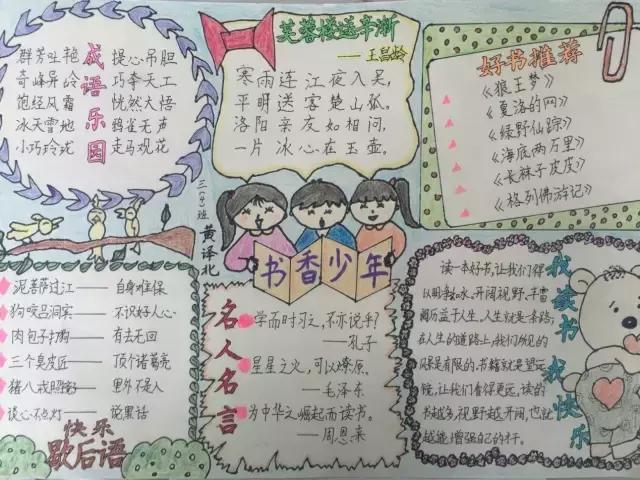 成语乐园
群芳吐艳 提心吊胆
奇峰异岭 巧夺天工
饱经风霜 恍然大悟
冰天雪地 鸦雀无声
小巧玲珑 走马观花
芙蓉楼送辛渐
——王昌龄
寒雨连江夜入吴，
平明送客楚山孤。
洛阳亲友如相问，
一片冰心在玉壶。
好书推荐
《狼王梦》
《夏洛的网》
《绿野仙踪》
《海底两万里》
《长袜子皮皮》
《格列佛游记》
三(4)班 黄译北
书香少年
泥菩萨过江——自身难保
狗咬吕洞宾——不识好人心
肉包子打狗——有去无回
三个臭皮匠——顶个诸葛亮
猪八戒照镜——里外不是人
谈心不点灯——说黑话
快乐
歇后语
名人名言
学而时习之，不亦说乎？
——孔子
星星之火，可以燎原。
——毛泽东
为中华之崛起而读书。
——周恩来
我读书 我快乐
读一本好书，让我们得
以明如水、开阔视野、丰富
阅历益于人生。人生就是一条路，
在人生的道路上，我们所见的
风景是有限的。书籍就是望远
镜，让我们看得更远，读的
书越多，视野越开阔，也就
越能增强自己的才干。